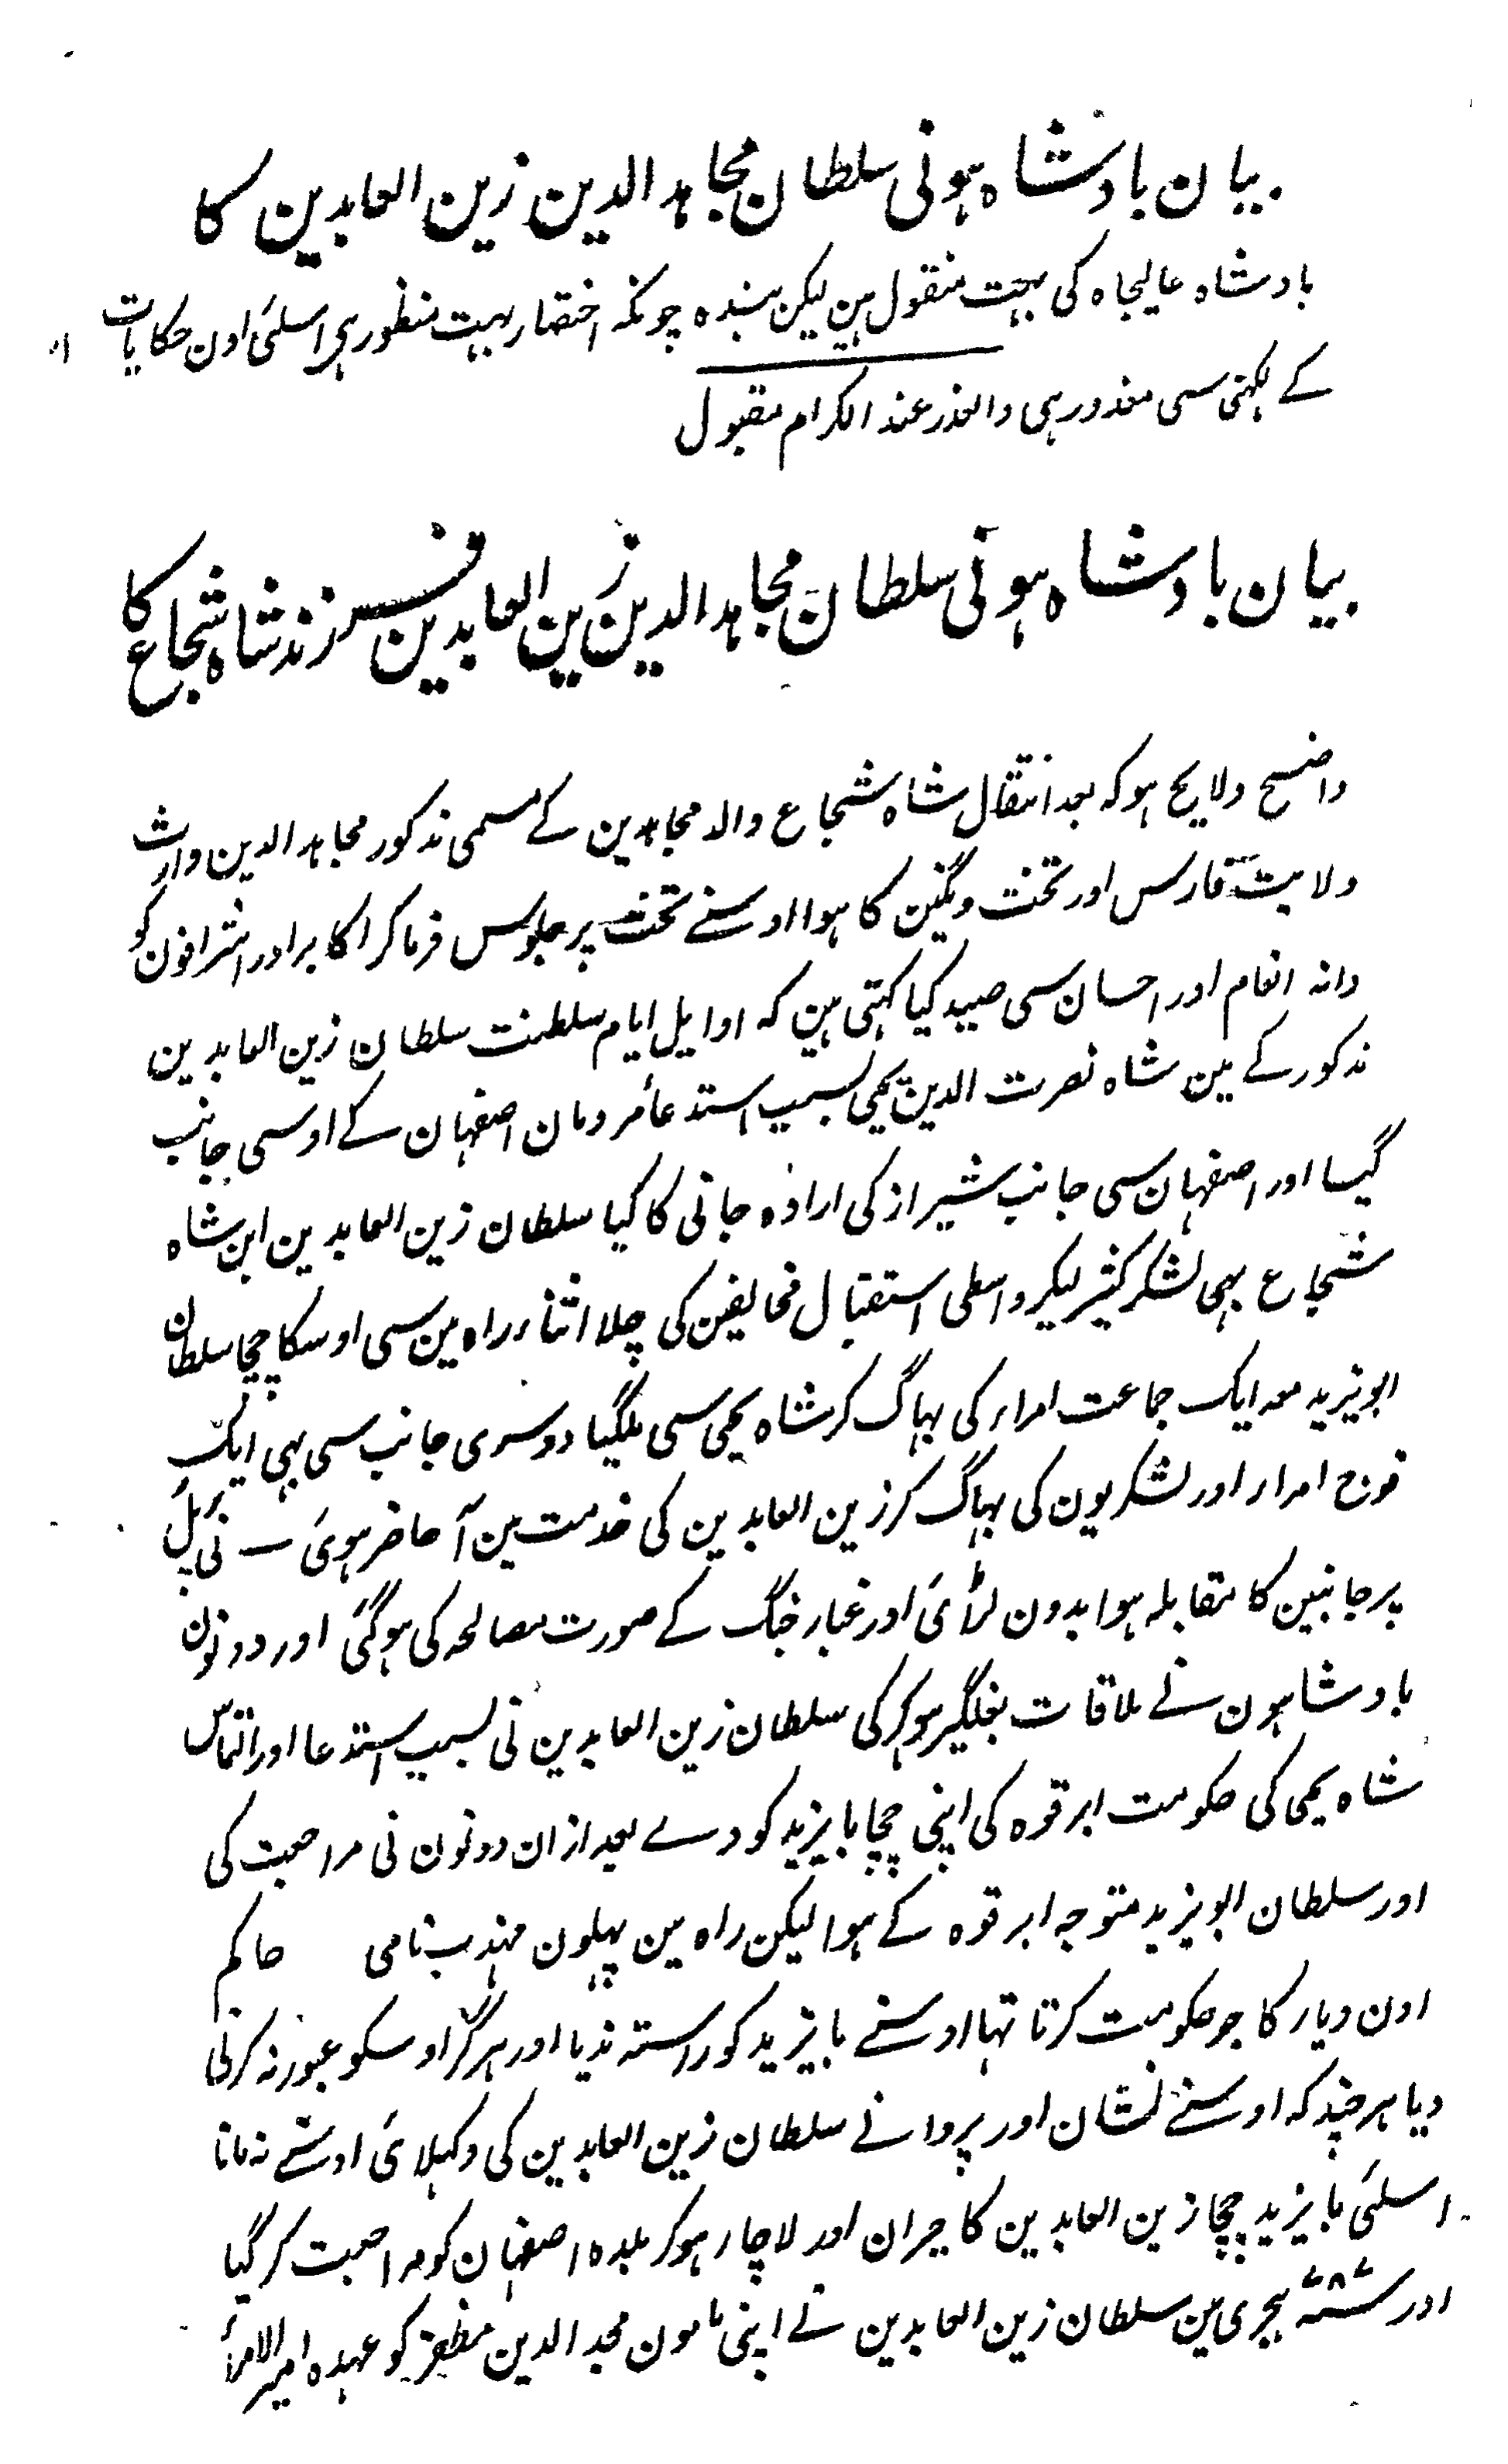 بیان بادشاہ ہونی سلطان مجاہد الدین زین العابدین کا
بادشاہ عالیجاہ کی بہت منقول ہین لیکن بندہ چونکہ اختصار بہت منظور ہی اسلئی اون حکایات
کے لکہنی سی معذور ہی والعذر عند الکرام مقبول
بیان بادشاہ ہونی سلطان مجاہد الدین زین العابدین فرزند شاہ شجاع کا
واضح ولایح ہو کہ بعد انتقال شاہ شجاع والد مجاہدین کے مسمی مذکور مجاہد الدین وارث
ولایت فارس اور تخت ونگین کا ہوا اوسنے تخت پر جلوس فرما کر اکابر اور اشرافون کو
دانہ انعام اور احسان سی صید کیا کہتی ہین کہ اوایل ایام سلطنت سلطان زین العابدین
مذکور کے مین شاہ نصرت الدین یحیی بسبب استدعاء مردمان اصفہان کے اوسی جانب
گیا اور اصفہان سی جانب شیراز کی ارادہ جانی کا کیا سلطان زین العابدین ابن شاہ
شجاع بہی لشکر کثیر لیکر واسطی استقبال مخالفین کی چلا اثناء راہ مین سی اوسکا چچا سلطان
ابویزید معہ ایک جماعت امراء کی بہاگ کر شاہ یحیی سی ملگیا دوسری جانب سی بہی ایک
فوج امراء اور لشکریون کی بہاگ کر زین العابدین کی خدمت مین آ حاضر ہوئی ـ پل
پر جانبین کا مقابلہ ہوا بدون لڑائی اور غبار جنگ کے صورت مصالحہ کی ہوگئی اور دونون
بادشاہون نے ملاقات بغلگیر ہوکر کی سلطان زین العابدین نی بسبب استدعا اور التماس
شاہ یحیی کی حکومت ابرقوہ کی اپنی چچا بایزید کو دے بعد ازان دونون نی مراجعت کی
اور سلطان ابویزید متوجہ ابرقوہ کے ہوا لیکن راہ مین پہلون مہذب نامی حاکم
اون دیار کا جو حکومت کرتا تہا اوسنے بایزید کو راستہ ندیا اور ہرگز اوسکو عبور نہ کرنی
دیا ہرچند کہ اوسنے نشان اور پروانے سلطان زین العابدین کی دکہلائی اوسنے نہ مانا
اسلئی بایزید چچا زین العابدین کا حیران اور لاچار ہوکر بلدہ اصفہان کو مراجعت کر گیا
اور ہجری مین سلطان زین العابدین نے اپنی مامون مجد الدین مظفر کو عہدہ امیر الامراء